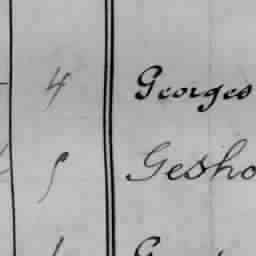 4 Georges
5 Gesho